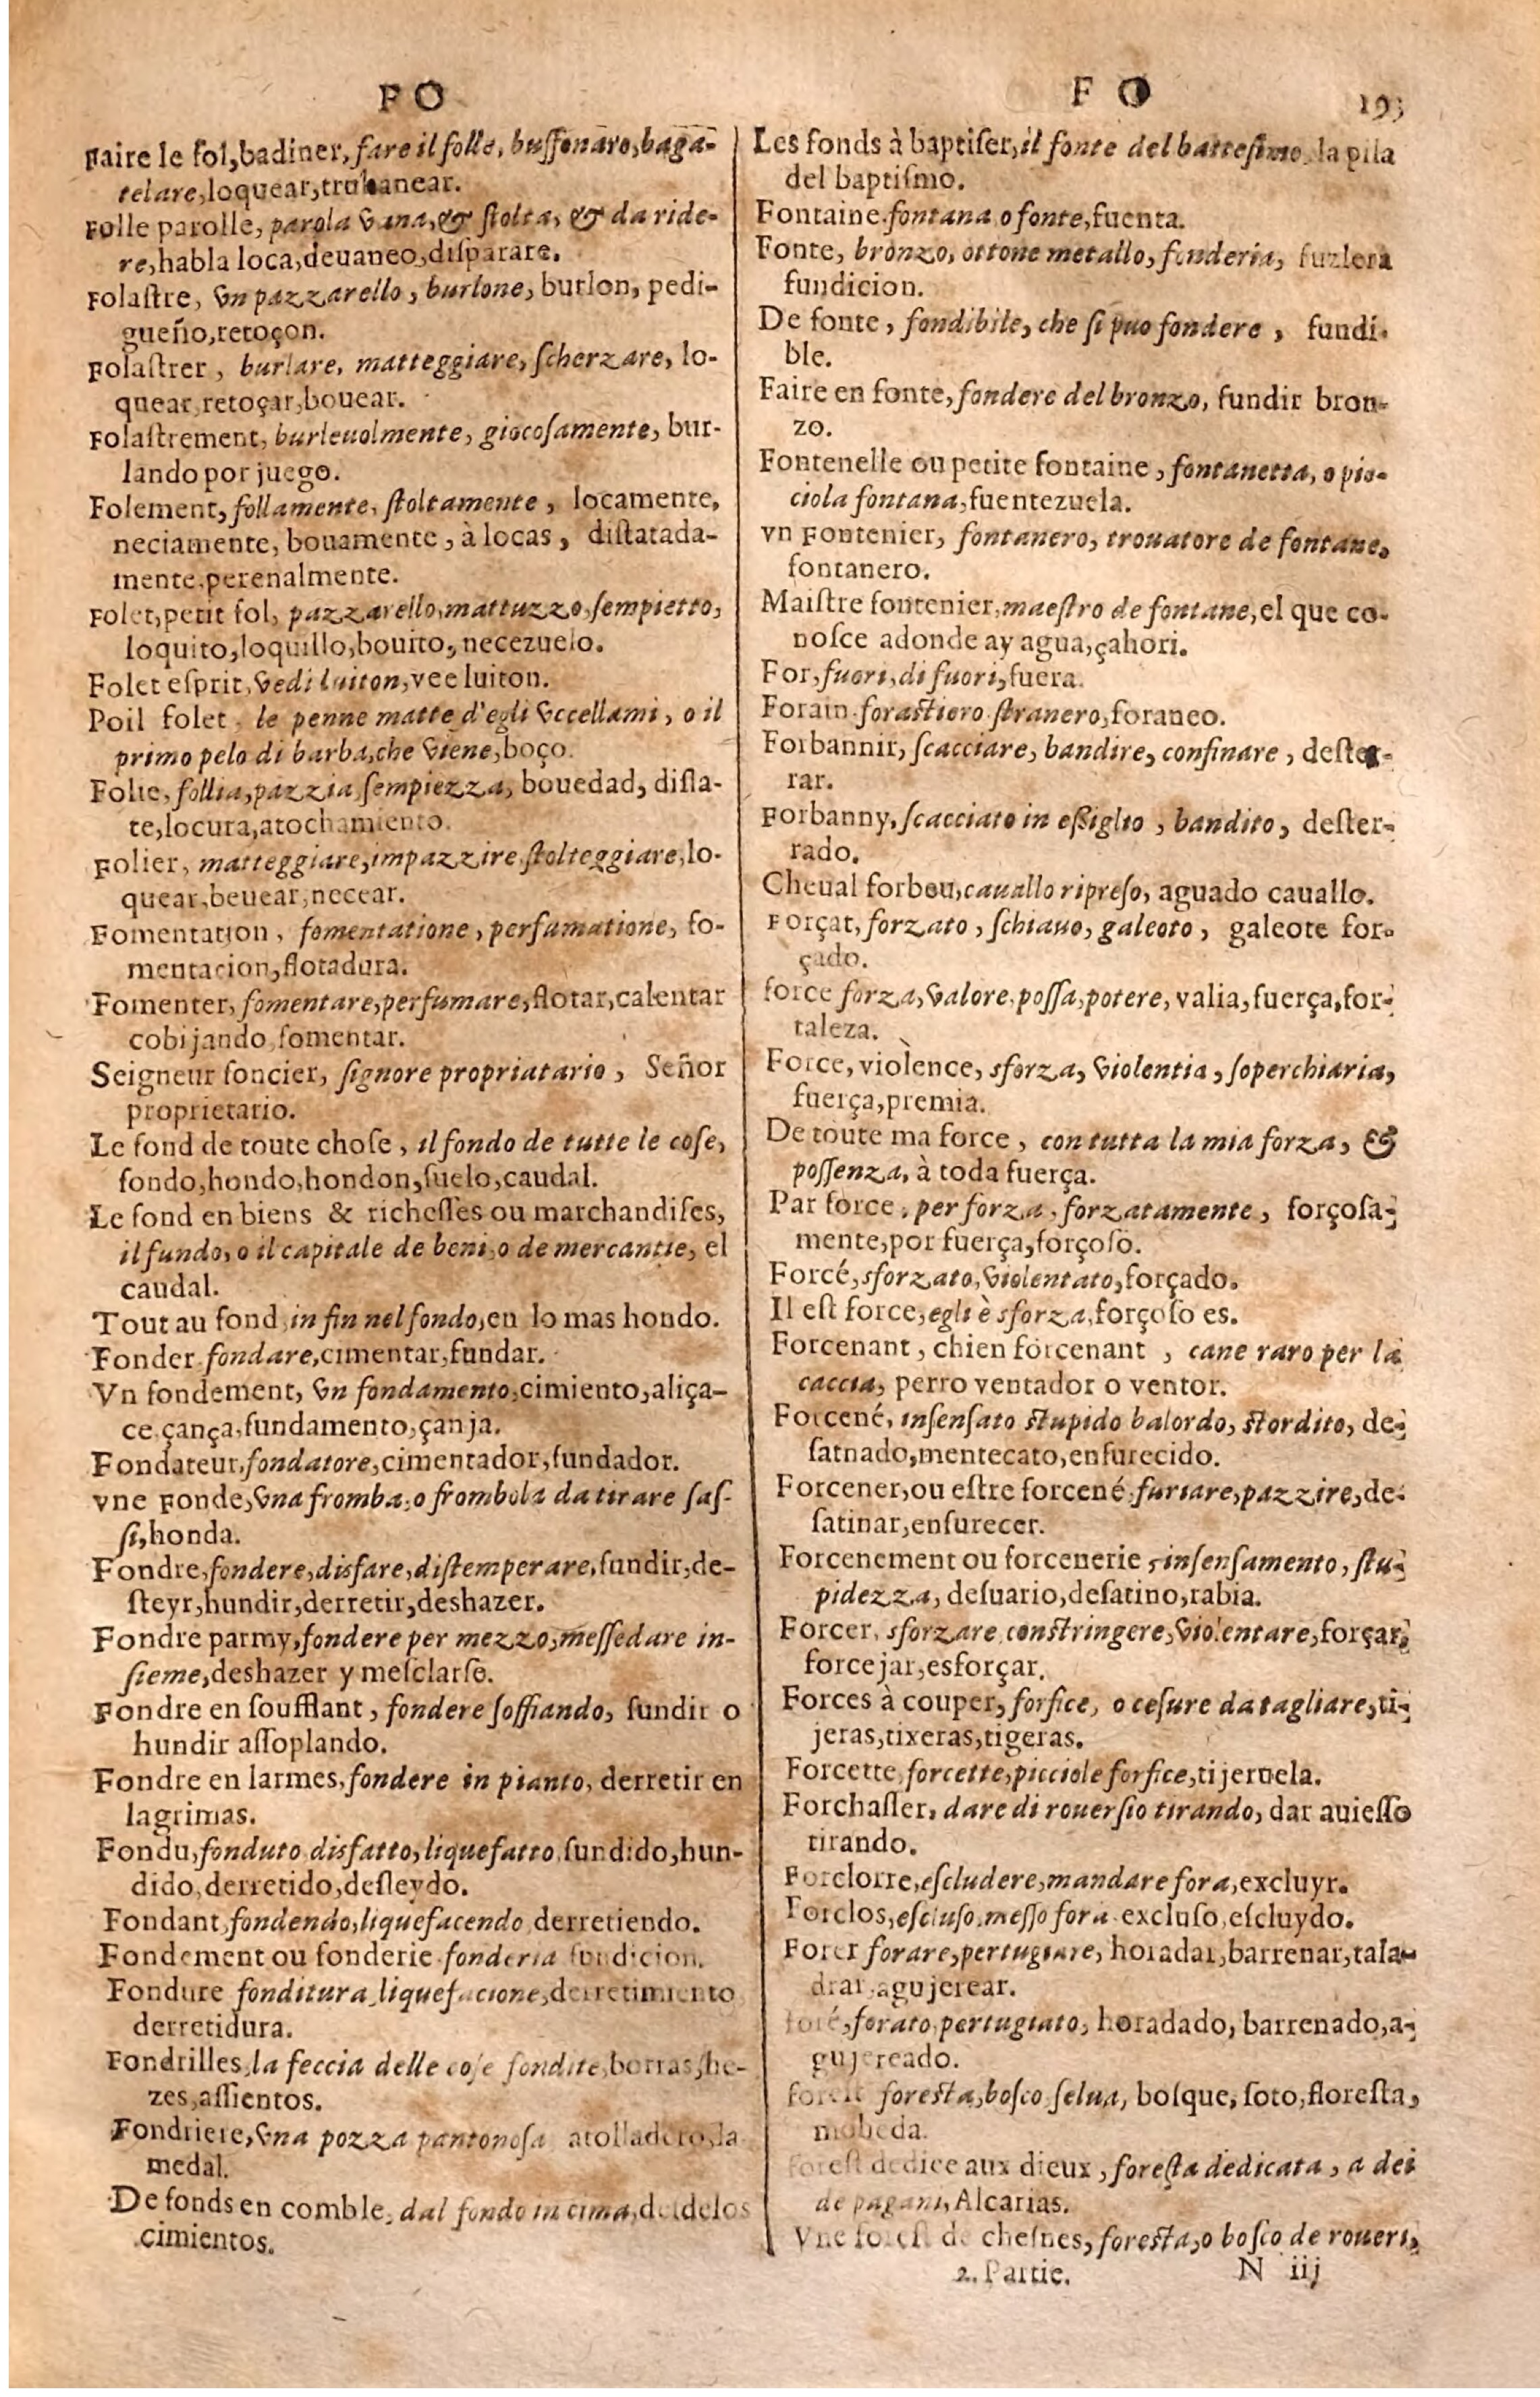 F O
Faire le fol, badiner, fare il folle, buffonare, baga-
telare, loquear, truhanear.
Folle parolle, parola vana, & ſtolta, & da ride-
re, habla loca, deuaneo, diſparate.
Folaſtre, vn pazzarello, burlone, burlon, pedi-
gueño, retoçon.
Folaſtrer, burlare, matteggiare, ſcherzare, lo-
quear, retoçar, bouear.
Folaſtrement, burleuolmente, giocoſamente, bur-
lando por juego.
Folement, follamente, ſtoltamente, locamente,
neciamente, bouamente, à locas, diſtatada-
mente, perenalmente.
Folet, petit fol, pazzarello, mattuzzo, ſempietto,
loquito, loquillo, bouito, necezuelo.
Folet eſprit, vedi luiton, vee luiton.
Poil folet, le penne matte d'egli vccellami, o il
primo pelo di barba, che viene, boço.
Folie, follia, pazzia, ſempiezza, bouedad, diſla-
te, locura, atochamiento.
Folier, matteggiare, impazzire, ſtolteggiare, lo-
quear, beuear, necear.
Fomentation, fomentatione, perfumatione, fo-
mentacion, flotadura.
Fomenter, fomentare, perfumare, flotar, calentar
cobijando, fomentar.
Seigneur foncier, ſignore propriatario, Señor
proprietario.
Le fond de toute choſe, il fondo de tutte le coſe,
fondo, hondo, hondon, ſuelo, caudal.
Le fond en biens & richeſſes ou marchandiſes,
il fundo, o il capitale de beni, o de mercantie, el
caudal.
Tout au fond, in fin nel fondo, en lo mas hondo.
Fonder fondare, cimentar, fundar.
Vn fondement, vn fondamento, cimiento, aliça-
ce, çança, fundamento, çanja.
Fondateur, fondatore, cimentador, fundador.
vne Fonde, vna fromba, o frombola da tirare ſaſ-
ſi, honda.
Fondre, fondere, disfare, diſtemperare, fundir, de-
ſteyr, hundir, derretir, deshazer.
Fondre parmy, fondere per mezzo, meſſedare in-
ſieme, deshazer y meſclarſe.
Fondre en ſoufflant, fondere ſoffiando, fundir o
hundir aſſoplando.
Fondre en larmes, fondere in pianto, derretir en
lagrimas.
Fondu, fonduto, disfatto, liquefatto, fundido, hun-
dido, derretido, deſleydo.
Fondant, fondendo, liquefacendo, derretiendo.
Fondement ou fonderie fonderia fundicion.
Fondure fonditura, liquefacione, derretimiento
derretidura.
Fondrilles, la feccia delle coſe fondite, borras, he-
zes, aſſientos.
Fondriere, vna pozza pantonoſa atolladero, la
medal.
De fonds en comble, dal fondo in cima, deſdelos
cimientos.
F O 193
Les fonds à baptiſer, il fonte del batteſimo, la pila
del baptiſmo.
Fontaine fontana o fonte, fuenta.
Fonte, bronzo, ottone metallo, fonderia, fuzlera
fundicion.
De fonte, fondibile, che ſi puo fondere, fundi-
ble.
Faire en fonte, fondere del bronzo, fundir bron-
zo.
Fontenelle ou petite fontaine, fontanetta, o pic-
ciola fontana, fuentezuela.
vn Fontenier, fontanero, trouatore de fontane,
fontanero.
Maiſtre fontenier, maeſtro de fontane, el que co-
noſce adonde ay agua, çahori.
For, fuori, di fuori, fuera.
Forain foraſtiero ſtranero, foraneo.
Forbannir, ſcacciare, bandire, confinare, deſter-
rar.
Forbanny, ſcacciato in eßiglio, bandito, deſter-
rado.
Cheual forbou, cauallo ripreſo, aguado cauallo.
Forçat, forzato, ſchiauo, galeoto, galeote for-
çado.
force forza, valore, poſſa, potere, valia, fuerça, for-
taleza.
Force, violence, sforza, violentia, ſoperchiaria,
fuerça, premia.
De toute ma force, con tutta la mia forza, &
poſſenza, à toda fuerça.
Par force, per forza, forzatamente, forçoſa-
mente, por fuerça, forçoſo.
Forcé, sforzato, violentato, forçado.
Il eſt force, egli è sforza, forçoſo es.
Forcenant, chien forcenant, cane raro per la
caccia, perro ventador o ventor.
Forcené, inſenſato ſtupido balordo, ſtordito, de-
ſatnado, mentecato, enfurecido.
Forcener, ou eſtre forcené furiare, pazzire, de-
ſatinar, enfurecer.
Forcenement ou forcenerie, inſenſamento, ſtu-
pidezza, deſuario, deſatino, rabia.
Forcer, sforzare conſtringere, violentare, forçar,
forcejar, esforçar.
Forces à couper, forfice, o ceſure da tagliare, ti-
jeras, tixeras, tigeras.
Forcette, forcette, picciole forfice, tijeruela.
Forchaſſer, dare di rouerſio tirando, dar auieſſo
tirando.
Forclorre, eſcludere, mandare fora, excluyr.
Forclos, eſcluſo, meſſo fora excluſo, eſcluydo.
Forer forare, pertugiare, horadar, barrenar, tala-
drar, agujerear.
foré, forato, pertugiato, horadado, barrenado, a-
gujereado.
foreſt foreſta, boſco ſelua, boſque, ſoto, floreſta,
mobeda.
foreſt dedice aux dieux, foreſta dedicata, a dei
de pagani, Alcarias.
Vne foreſt de cheſnes, foreſta, o boſco de roueri,
2. Partie. N iij